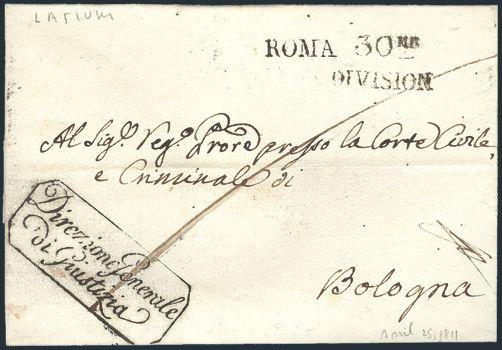 LATIUM
ROMA 30ME
DIVISION
Al Sig.r Reg.o Prore presso la Corte Civile,
e Criminale di
Direzione Generale
di Giustizia
Bologna
April 25, 1811